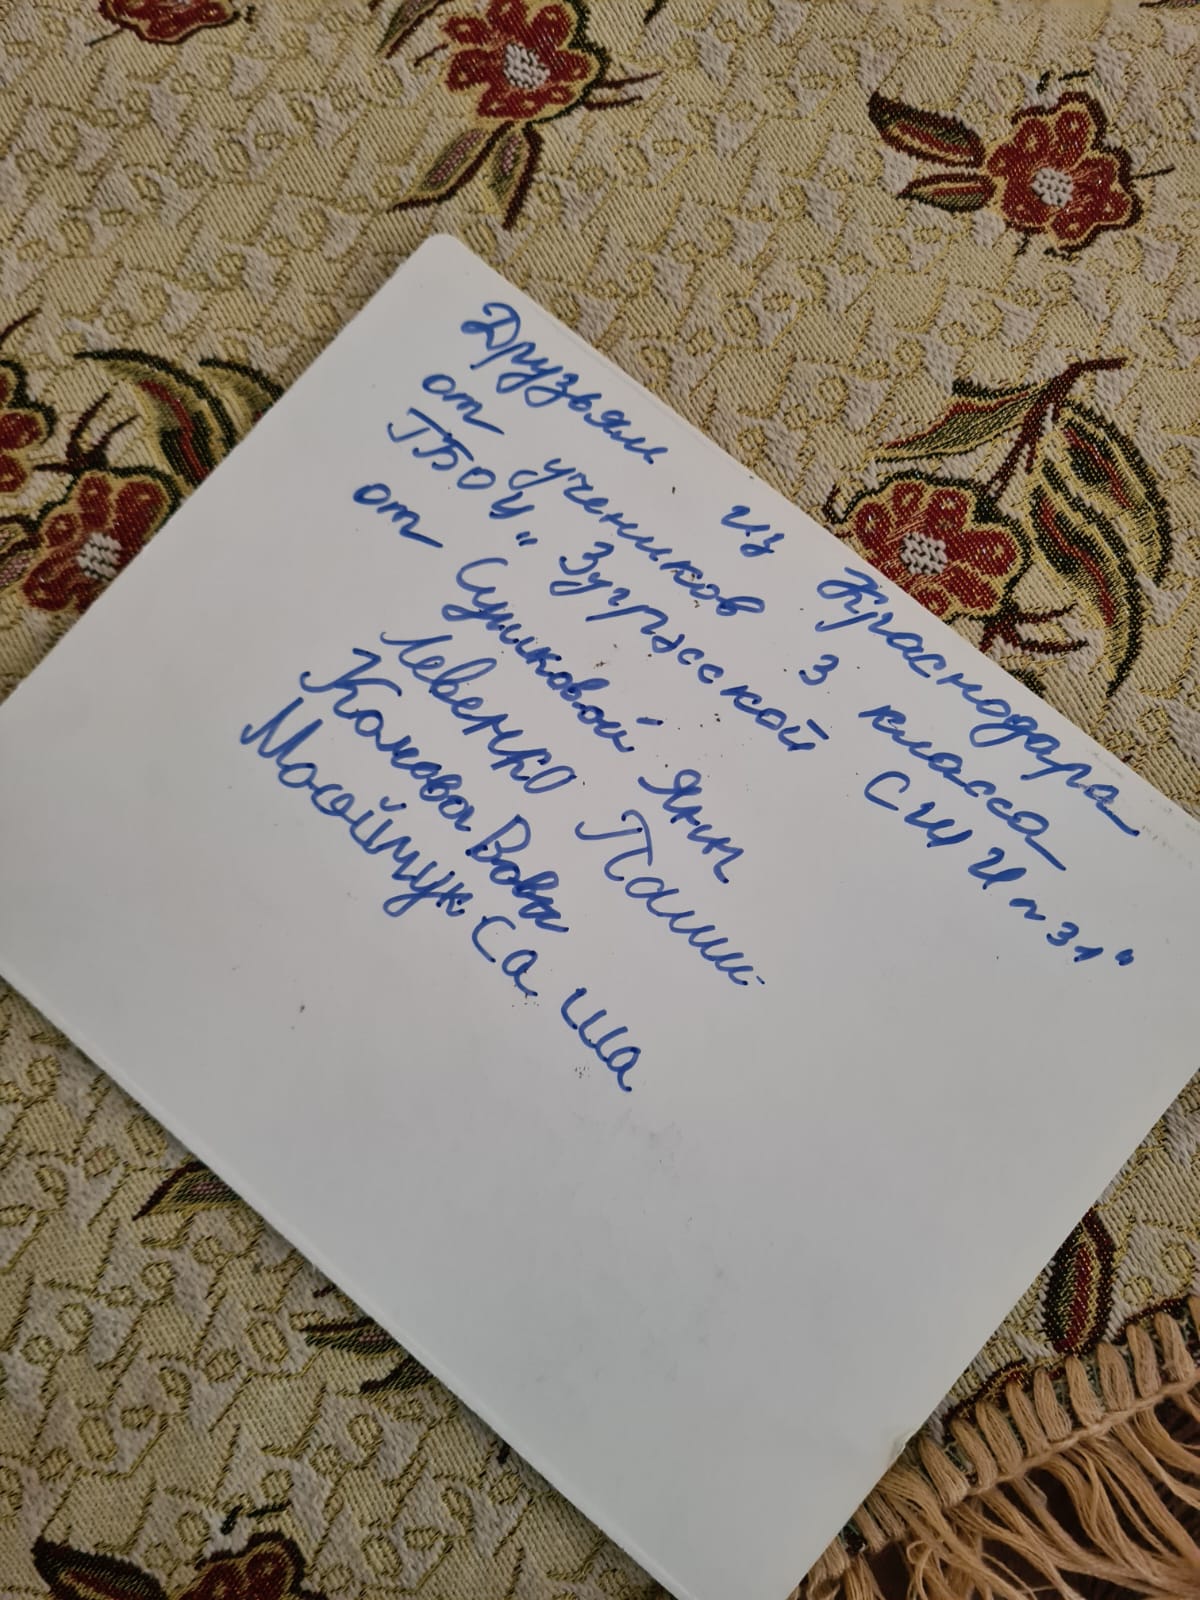 Друзьям из Краснодара
от учеников 3 класса
ГБОУ "Зугрэсской СШИ ~ 31"
от Сушковой Яны
Левенко Паши
Комова Вова
Моойчук Саша